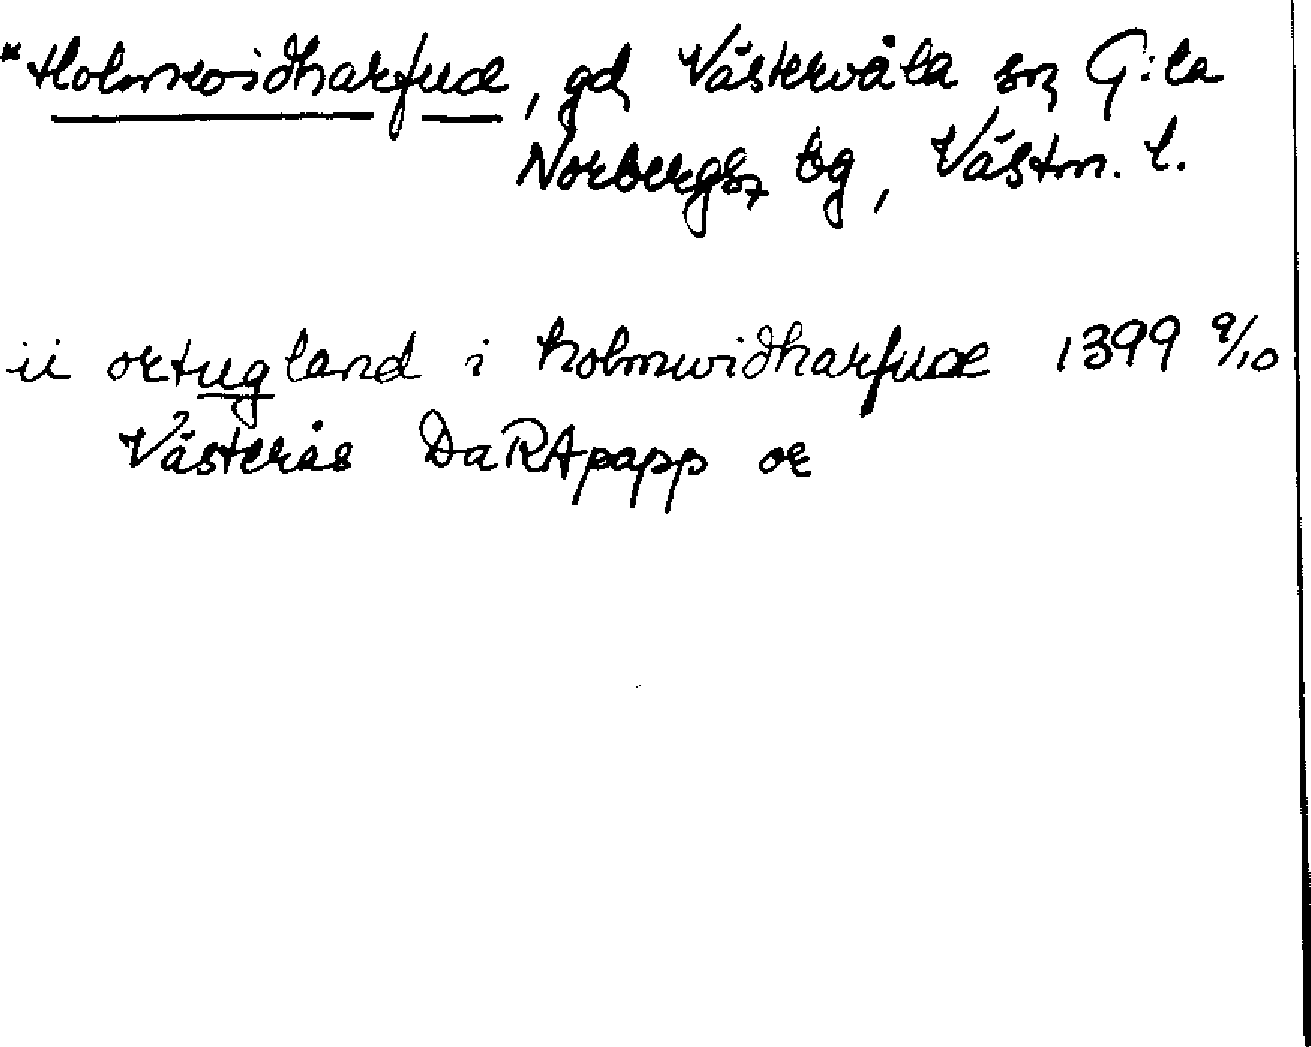 *Holmwidharfuæ, gd, Västervåla sn, G:la
Norbergs bg, Västm. l.
ii ortugland i holmwidharfuæ 1399 9/10
Västerås DaRApapp or